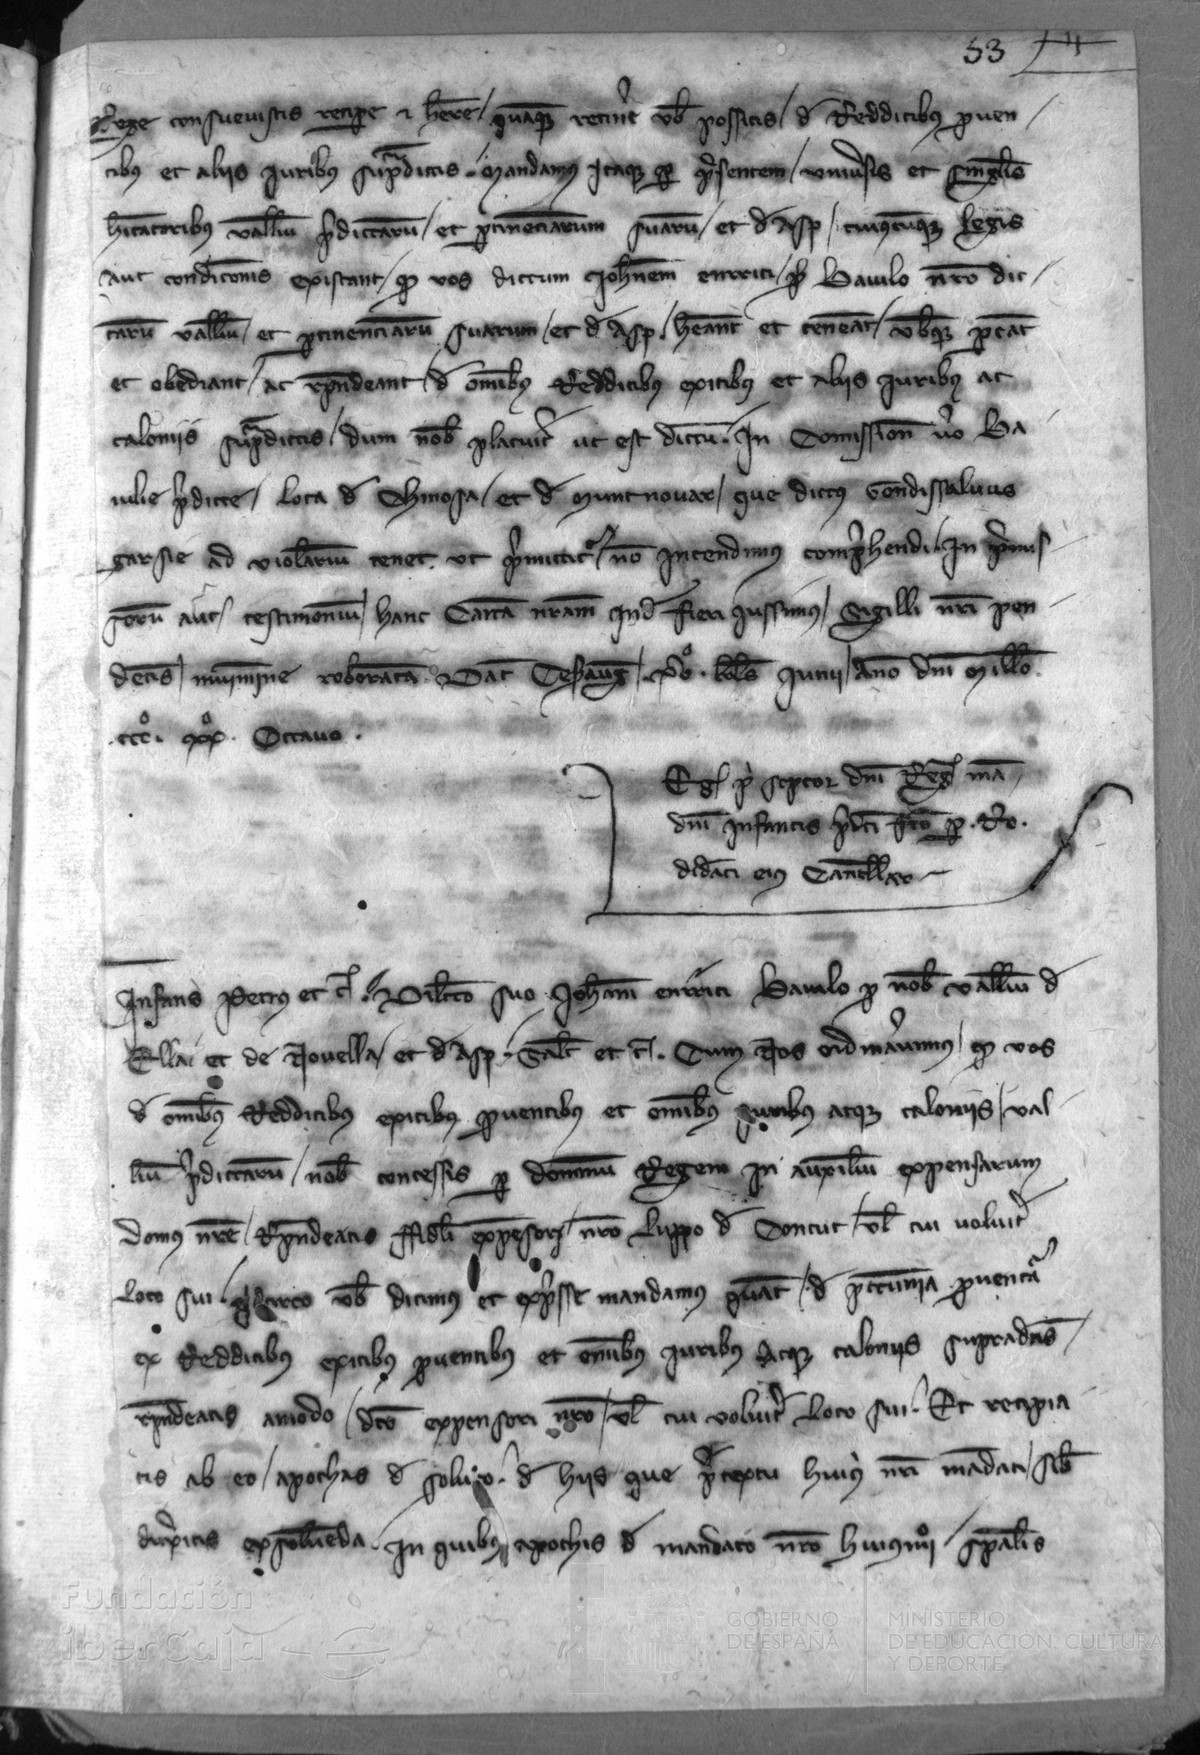 53
Rege consuevistis recipe et here / quamque retinere vob possitis / d Redditibus proven
tibus et aliis juribus supradictis. Mandamus itaque per presentem / universis et singulis
hitatoribus vallium predictarum / et pertinenciarum suarum / et d Asp / cuiuscumque legis
aut condiconis existant / quod vos dictum Johnem enrrici / pro Baiulo nro dic
tarum vallium / et pertinenciarum suarum / et d Asp. heant et teneat / vobisque
et obediant / ac rpndeant / d omibus Redditibus exitibus et aliis juribus ac
caloniis supradictis / dum nob placuerit ut est dictum. In Comission vero Ba
iulie predicte / loca d / et d Muntnovar / que dictus Gondissalvus
garsie ad violarium tenet. ut premittitur / non intendimus comprehendi. In premis
sorum aut testimonium / hanc Carta nram Ind fieri jussimus / Sigilli nri pen
detis / munimine roborata. Dat Cesaraug / kls Junii / Anno dni Millo
ccc. xxx. Octavo.
Egi pr scptor dni Reg ma
dni Infantis predicti fco per. Ro.
didaci eius Cancellar
Infans Petrus et c. Dilecto suo Johani enrrici Baiulo pro nob vallium d
Ellai et de Novella / et d Asp. Salt et c. Cum Nos ordinaverimus / quod vos
d omibus Redditibus exitibus proventibus et omibus juribus atque caloniis / val
lium predictarum / nob concessis per dominum Regem in auxilium expensarum
domus nre / Rpndeatis ffideli expensori / nro Luppo d Concut / vl cui voluerit
loco sui. Idcirco vob dicimus et expresse mandamus quat / d peccunia provent
ex Redditibus exitibus proventibus et omibus juribus Atque caloniis supradictis
rpndeatis amodo / dco expensori nro / vl cui voluerit loco sui. Et recipia
tis ab eo / apochas d soluto. d hiis que precepto huius nri mandati / sib
duxeritis exsolvenda. In quibus apochis d mandato nro huiusmoi / spalis
Fundación
iberCaja
GOBIERNO
DE ESPAÑA
MINISTERIO
DE EDUCACION, CULTURA
Y DEPORTE